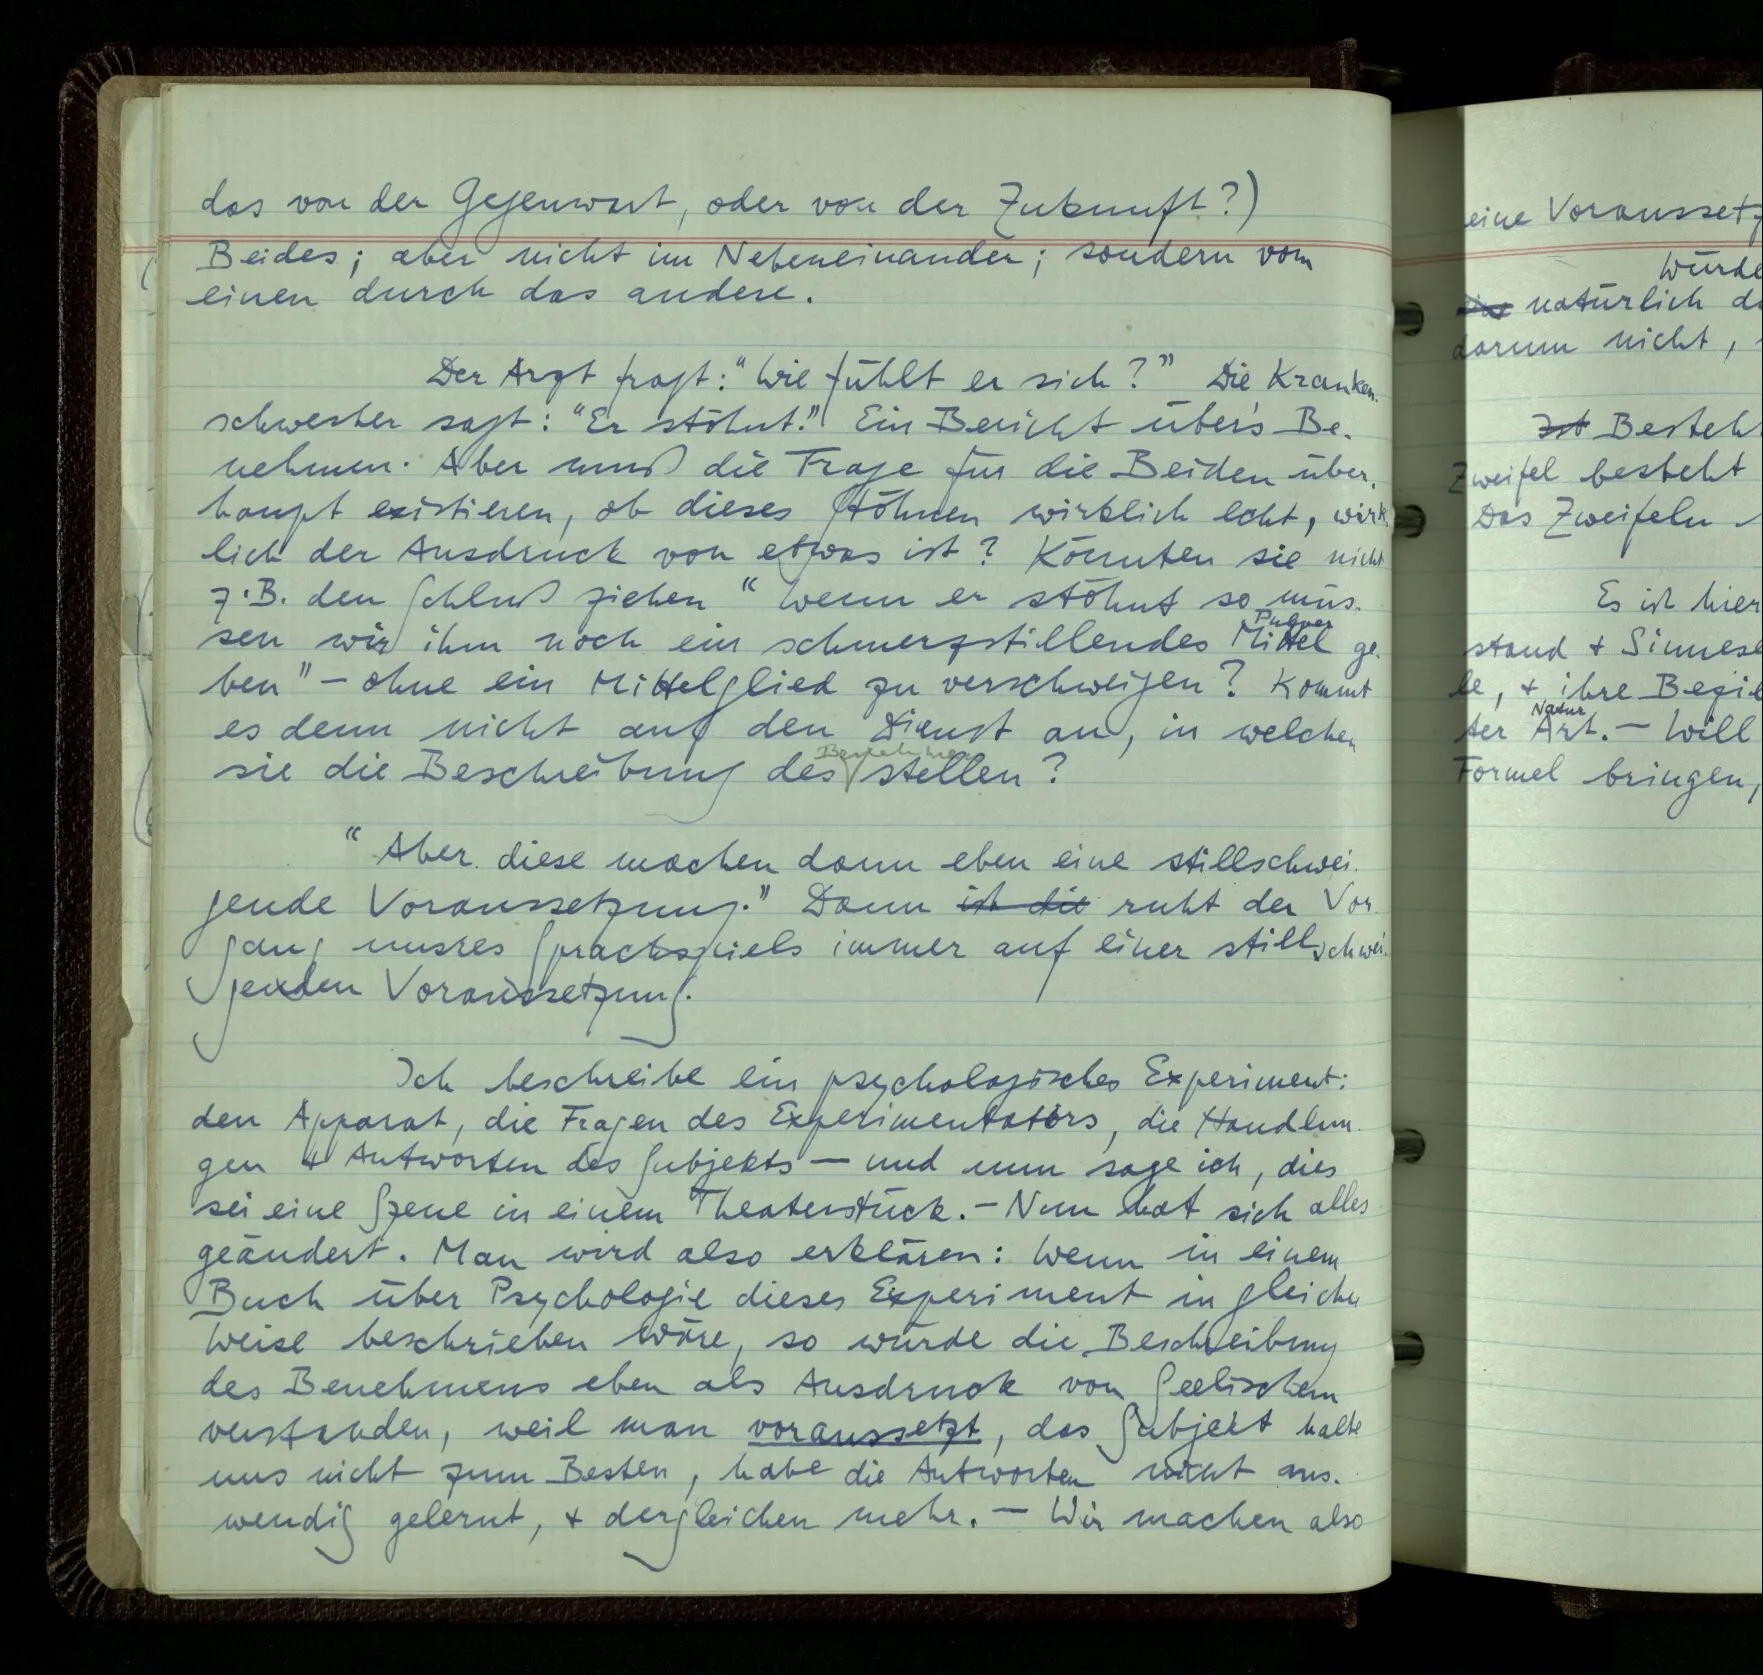 das von der Gegenwart, oder von der Zukunft?)
Beides; aber nicht im Nebeneinander; sondern vom
einen durch das andere.
Der Arzt fragt: “Wie fühlt er sich?” Die Kranken-
schwester sagt: “Er stöhnt.” Ein Bericht über's Be-
nehmen. Aber muß die Frage für die Beiden über-
haupt existieren, ob dieses Stöhnen wirklich echt, wirk-
lich der Ausdruck von etwas ist? Könnten sie nicht
z.B. den Schluß ziehen “Wenn er stöhnt so müs-
Pulver
sen wir ihm noch ein schmerzstillendes Mittel ge-
ben” – ohne ein Mittelglied zu verschweigen? Kommt
es denn nicht auf den Dienst an, in welchen
Benehmens
sie die Beschreibung des stellen?
“Aber diese machen dann eben eine stillschwei-
gende Voraussetzung.” Dann ist die ruht der Vor-
gang unsres Sprachspiels immer auf einer stillschwei-
genden Voraussetzung.
Ich beschreibe ein psychologisches Experiment:
den Apparat, die Fragen des Experimentators, die Handlun-
gen + Antworten des Subjekts – und nun sage ich, dies
sei eine Szene in einem Theaterstück. – Nun hat sich alles
geändert. Man wird also erklären: Wenn in einem
Buch über Psychologie dieses Experiment in gleicher
Weise beschrieben wäre, so würde die Beschreibung
des Benehmens eben als Ausdruck von Seelischem
verstanden, weil man voraussetzt, das Subjekt halte
uns nicht zum Besten, habe die Antworten nicht aus-
wendig gelernt, + dergleichen mehr. – Wir machen also
eine Voraussetz
Würde
natürlich
darum nicht,
Ist Besteh
Zweifel besteht
Das Zweifeln
Es ist hier
stand + Sinnes
le, + ihre Bezie
Natur
ter Art. – Will
Formel bringen,